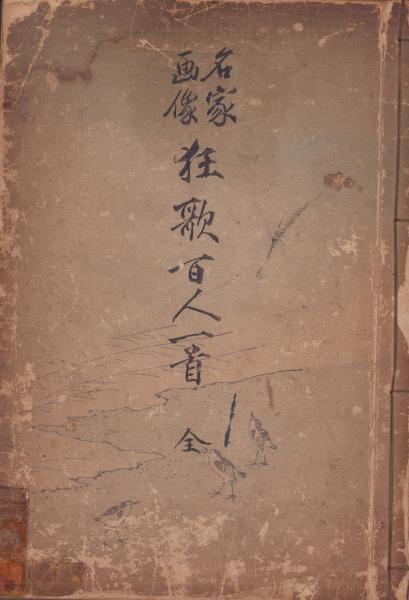 名家
画像
狂歌百人一首
全